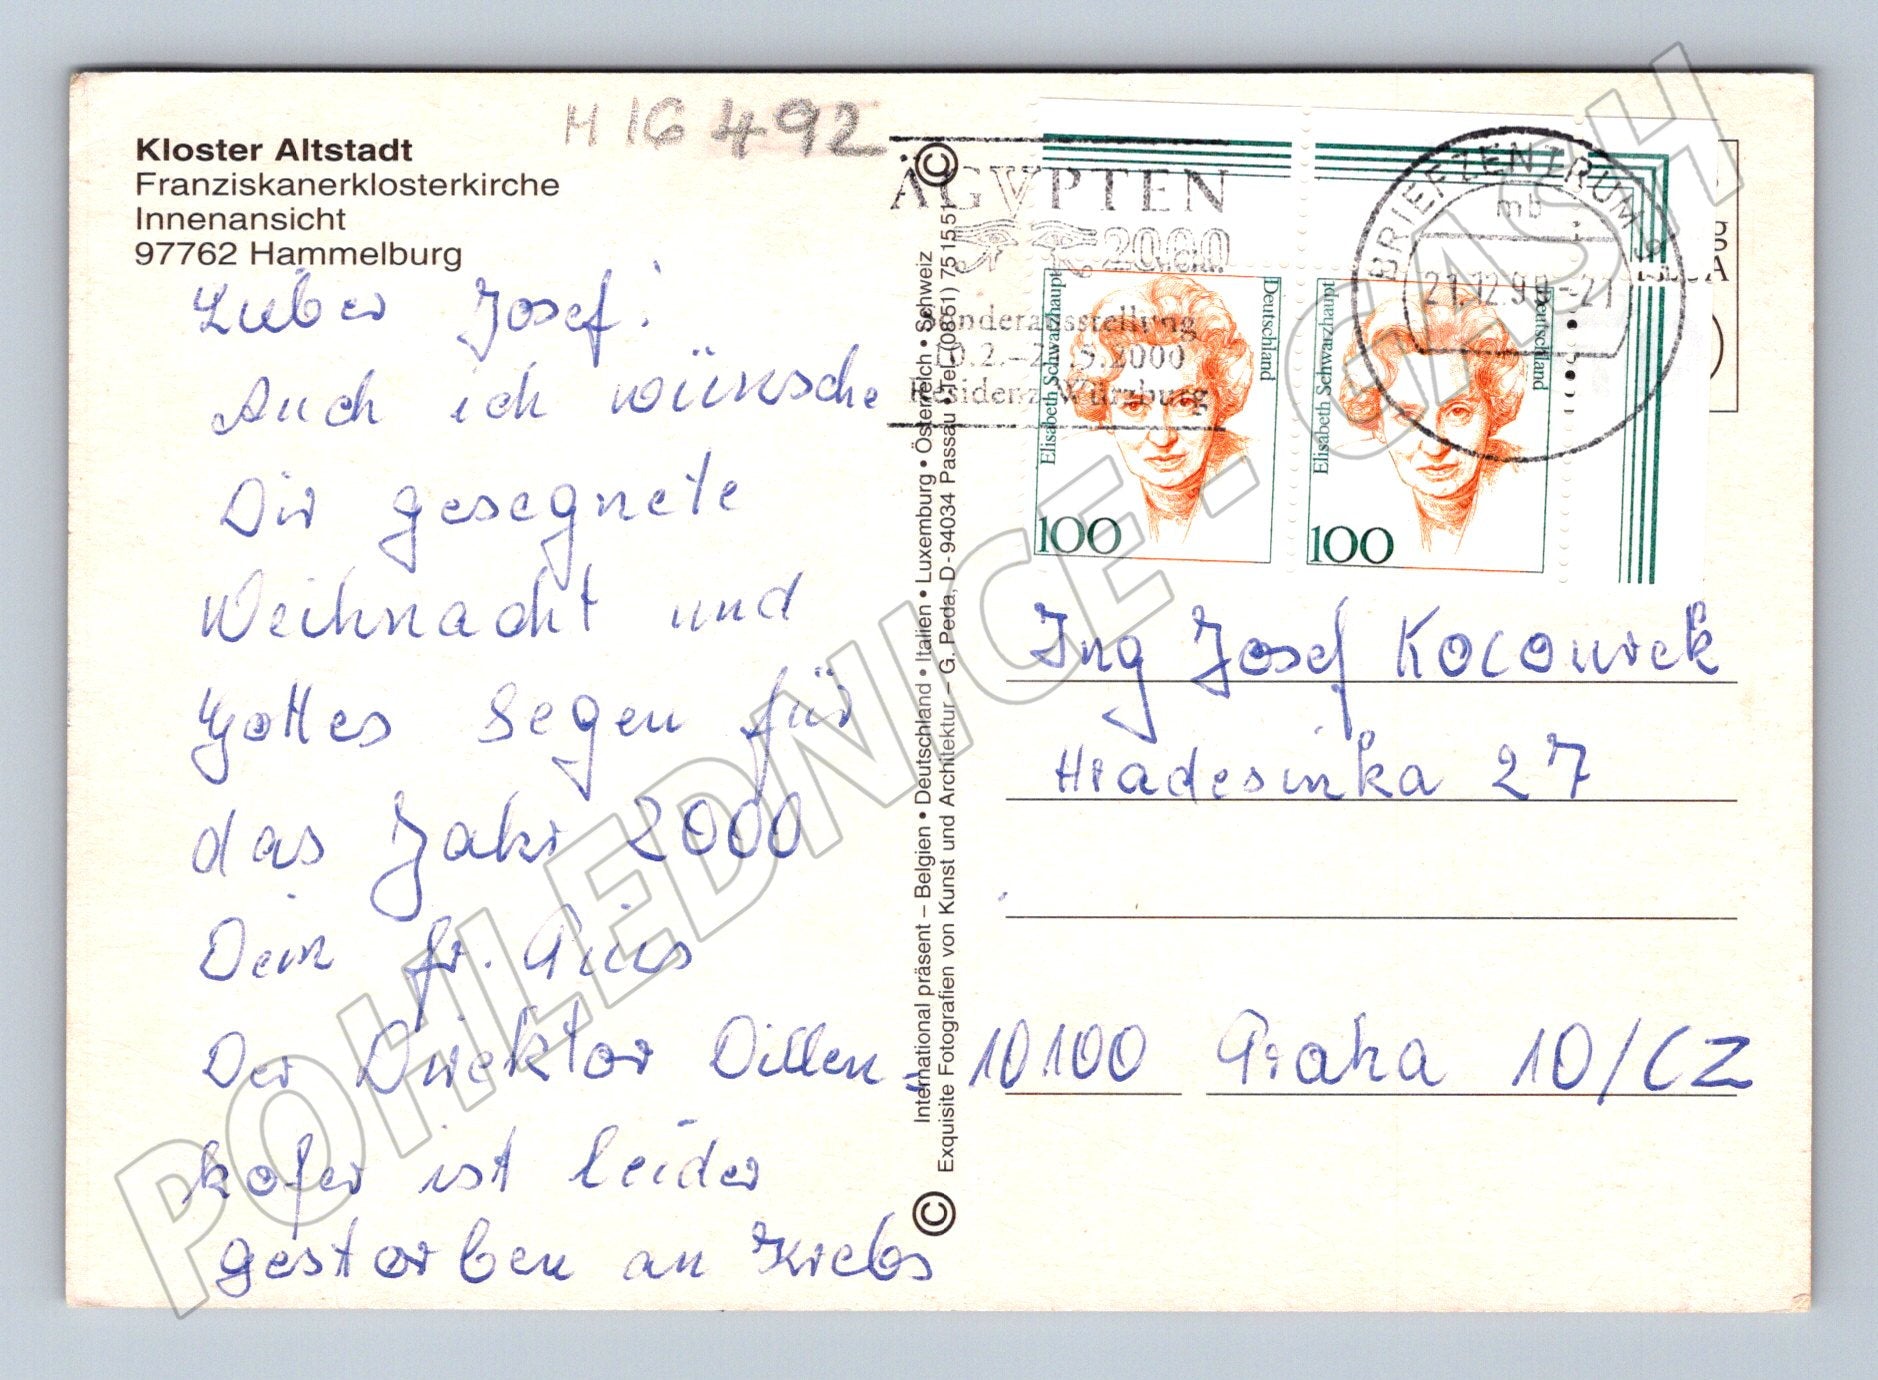 H IG 492
Kloster Altstadt
Franziskanerklosterkirche
Innenansicht
97762 Hammelburg
Lieber Josef!
Auch ich wünsche
Dir gesegnete
Weihnacht und
Gottes Segen für
das Jahr 2000
Dein fr. Pius
Der Direktor Dillen-
kofer ist leider
gestorben an Krebs
©
International präsent – Belgien • Deutschland • Italien • Luxemburg • Österreich • Schweiz
Exquisite Fotografien von Kunst und Architektur – G. Peda, D-94034 Passau (Tel. (0851) 751 51 51
©
ÄGYPTEN
2000
v. Chr.
Sonderausstellung
Residenz Würzburg
BRIEFZENTRUM
mb
21.12.99-21
Elisabeth Schwarzhaupt
Deutschland
100
Elisabeth Schwarzhaupt
Deutschland
100
Ing Josef Kocourek
Hradesinka 27
10100 Praha 10/CZ
POHLEDNICE - CASH